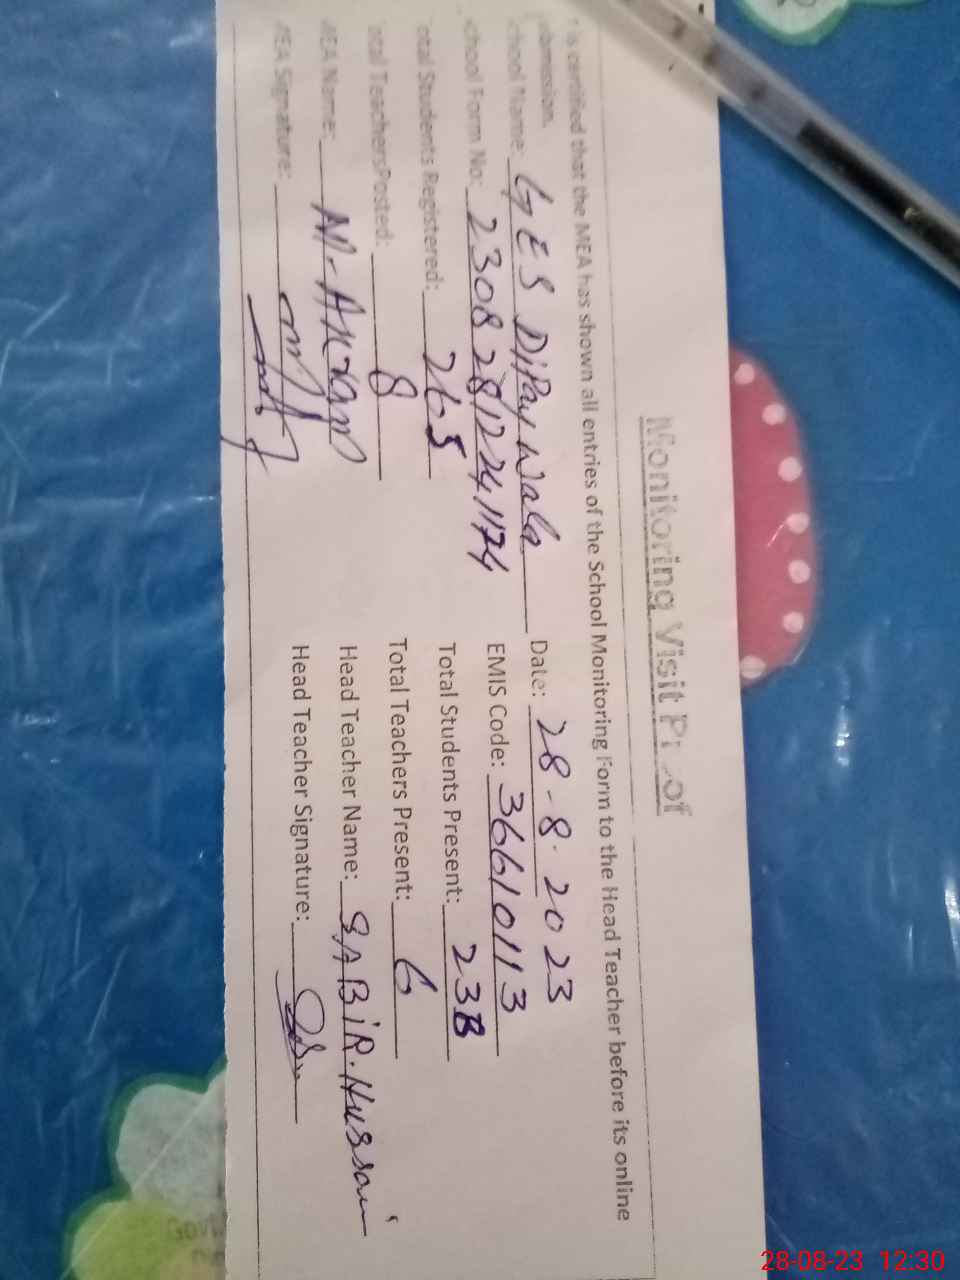 Monitoring Visit Proof
is certified that the MEA has shown all entries of the School Monitoring Form to the Head Teacher before its online
bmission.
chool Name: GES DiPay Wala Date: 28-8-2023
chool Form No: 2308 28122411 74 EMIS Code: 36610113
otal Students Registered: 265 Total Students Present: 238
otal TeachersPosted: 8 Total Teachers Present: 6
MEA Name: M-Akram Head Teacher Name: SABiR.Hussain
MEA Signature: Head Teacher Signature:
28-08-23 12:30